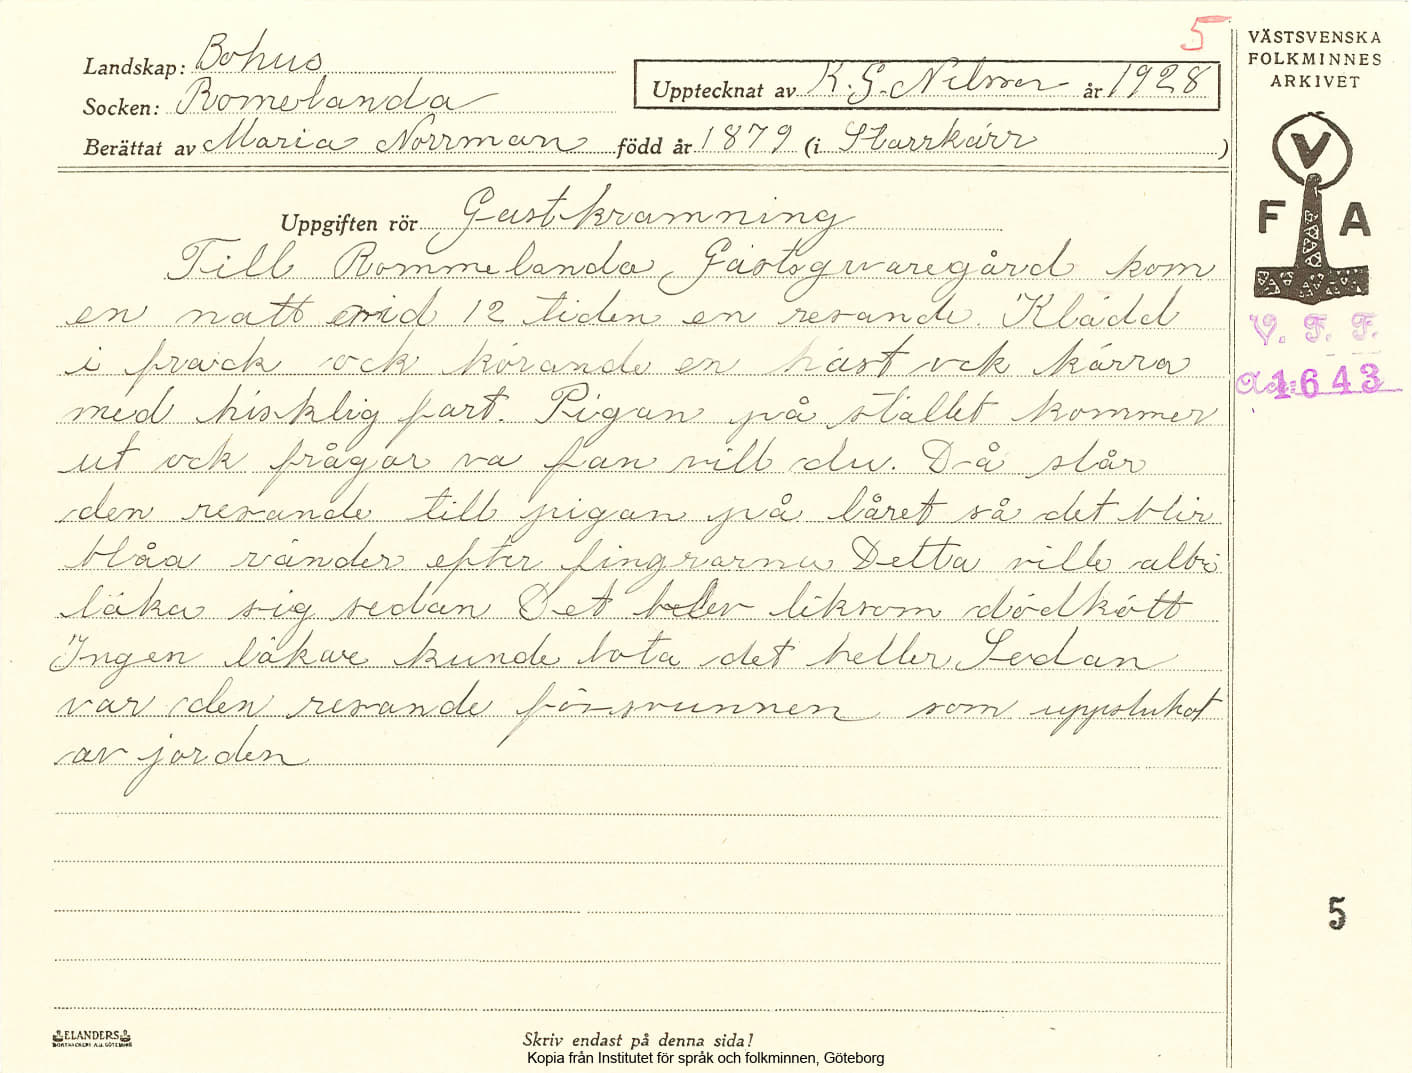 5
Landskap: Bohus
Socken: Romelanda
Upptecknat av K. G. Nilsson år 1928
Berättat av Maria Norrman född år 1879 (i Starrkärr)
Uppgiften rör Gastkramning
Till Rommelanda Gästsgivaregård kom
en natt vid 12 tiden en resande. Klädd
i frack ock körande en häst ock kärra
med hisklig fart. Pigan på stället kommer
ut ock frågar va fan vill du. Då slår
den resande till pigan på låret så det blir
blåa ränder efter fingrarna Detta ville aldri
läka sig sedan Det blev liksom dödkött
Ingen läkare kunde bota det heller Sedan
var den resande försvunnen som uppslukat
av jorden
VÄSTSVENSKA
FOLKMINNES
ARKIVET
V
F A
V. F. F.
1643
5
ELANDERS
Skriv endast på denna sida!
Kopia från Institutet för språk och folkminnen, Göteborg